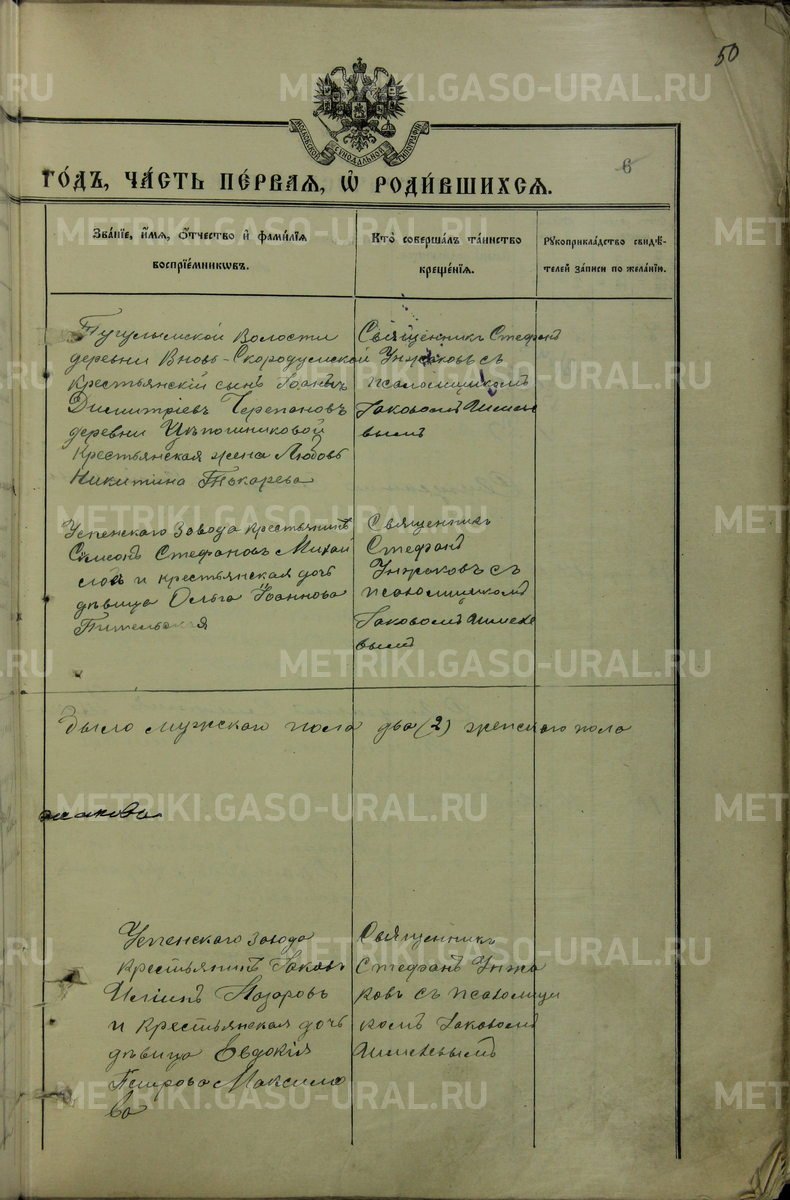 50
МОСКОВСКОЙ СѴНОДАЛЬНОЙ ТИПОГРАФІИ
6
ГО́ДЪ, ЧА́СТЬ ПЕ́РВАѦ, Ѡ҆ РОДИ́ВШИХСѦ.
Зва́нїе, и҆́мѧ, ѻ҆́тчество и҆ фами́лїѧ
воспрїе́мникѡвъ.
Кто̀ соверша́лъ та́инство
креще́нїѧ.
Рꙋкоприкла́дство свидѣ́-
телей за́писи по жела́нїю.
Тугулымской Волости
деревни Вновь-Скородумской
крестьянскій сынъ Іоаннъ
Димитріевъ Черепановъ
деревни
крестьянская жена Любовь
Никитина Токарева
Священникъ Стефанъ
Унжаковъ съ
псаломщикомъ
Іаковомъ Шише
вымъ
Успенскаго завода крестьянинъ
Симеонъ Стефановъ Михай
ловъ и крестьянская дочь
дѣвица Ольга Іоаннова
Священникъ
Стефанъ
Унжаковъ съ
псаломщикомъ
Іаковомъ Шише
вымъ
Было мужскаго пола два (2) женскаго пола
Успенскаго завода
крестьянинъ Іаковъ
Назаровъ
и крестьянская дочь
дѣвица Евдокія
Петрова Максимо
ва
Священникъ
Стефанъ Унжа
ковъ съ псаломщи
комъ Іаковомъ
Шишевымъ
METRIKI.GASO-URAL.RU